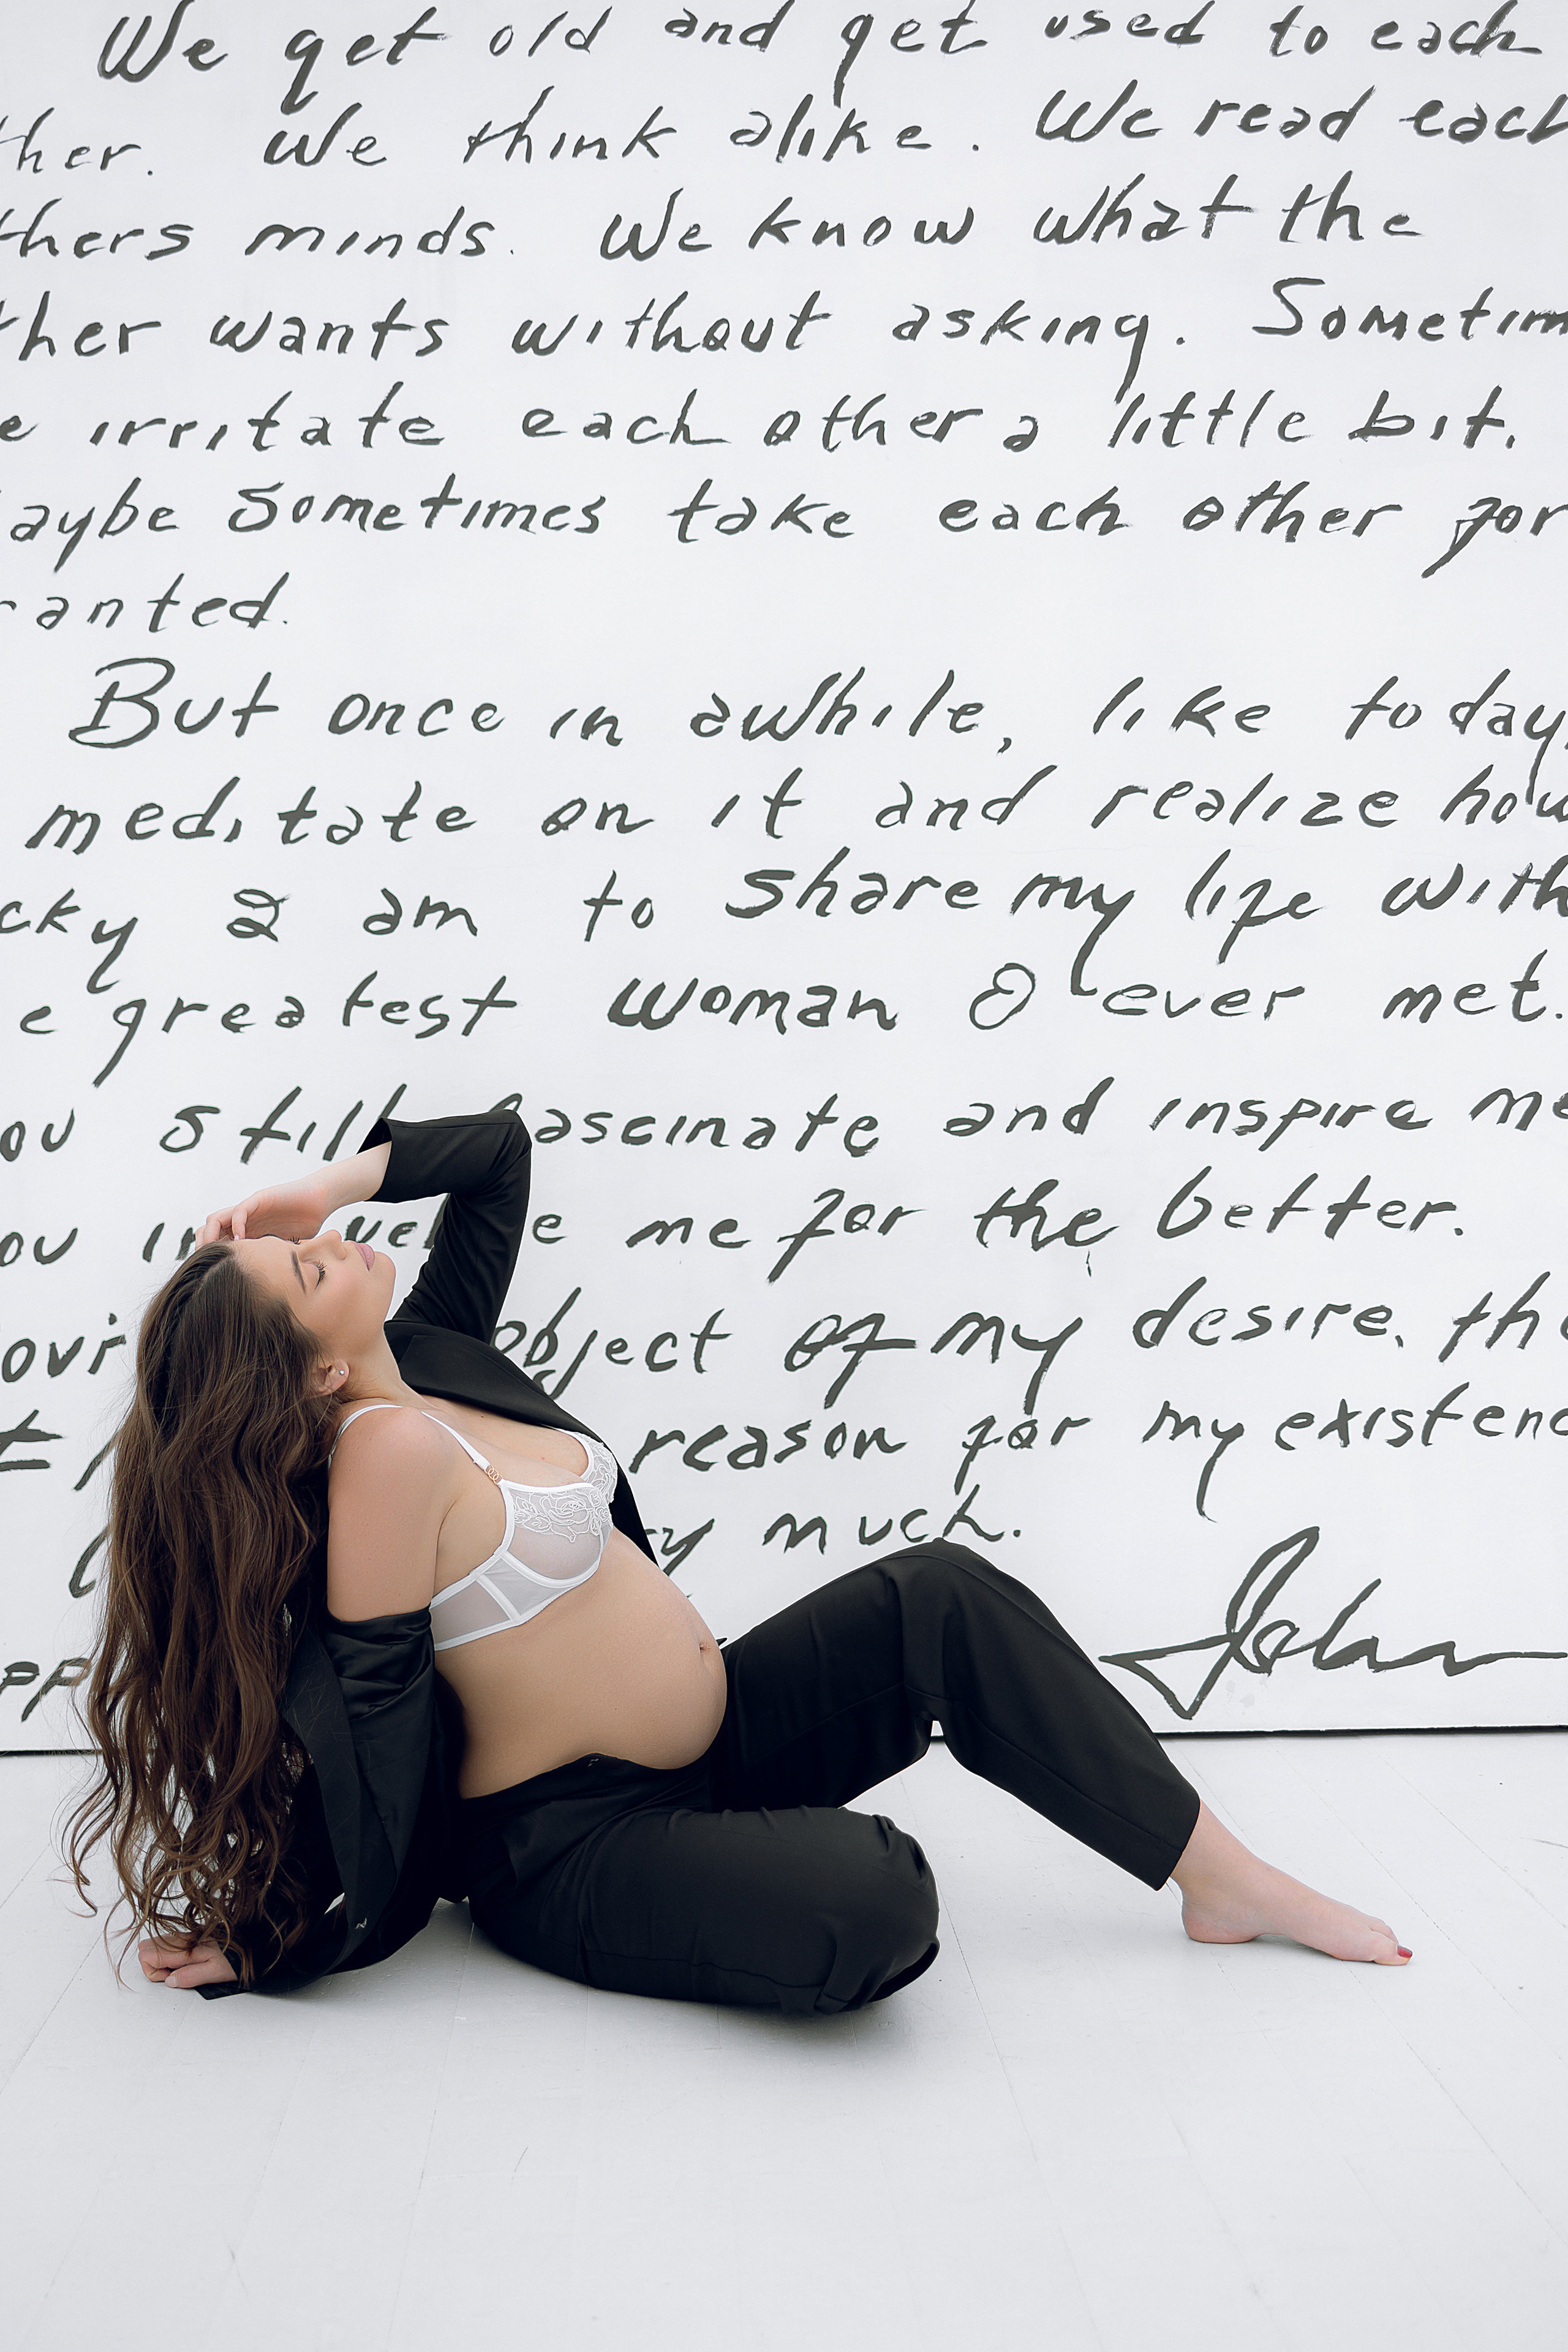 We get old and get used to each
ther. We think alike. We read each
thers minds. We know what the
ther wants without asking. Sometim
e irritate each other a little bit.
aybe sometimes take each other for
ranted.
But once in awhile, like today,
meditate on it and realize how
cky I am to share my life with
e greatest woman I ever met.
ou still fascinate and inspire me
ou in me for the better.
object of my desire, the
reason for my existenc
y much.
John
pp